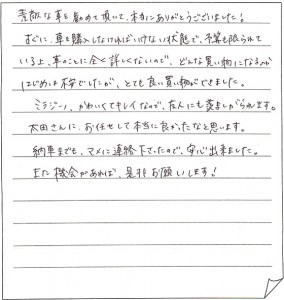 素敵な車を勧めて頂いて、本当にありがとうございました!
すぐに、車を購入しなければいけない状態で、予算も限られて
いる上、車のことに全く詳しくないので、どんな買い物になるか
はじめは不安でしたが、とても良い買い物ができました。
ミラジーノ、かわいくてキレイなので、友人にも羨ましがられます。
太田さんに、お任せして本当に良かったなと思います。
納車までも、マメに連絡下さったので、安心出来ました。
また機会があれば、是非お願いします!